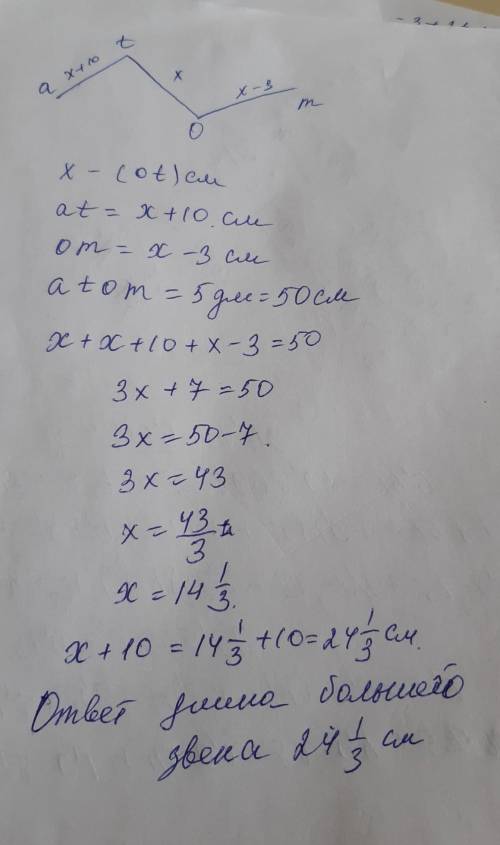 t
a x+10 x x-3 m
O
x - (ot) см
at = x+10. см
om = x - 3 см
atom = 5 дм = 50 см
x + x + 10 + x - 3 = 50
3x + 7 = 50
3x = 50 - 7.
3x = 43
x = 43/3
x = 14 1/3.
x + 10 = 14 1/3 + 10 = 24 1/3 см.
Ответ длина большего
звена 24 1/3 см